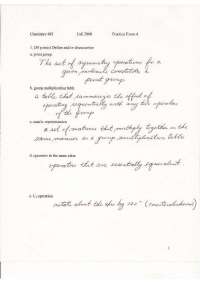 Chemistry 483 Fall 2000 Practice Exam 4
1. (25 points) Define and/or discuss/answer
a. point group
The set of symmetry operations for a
given molecule constitute a
point group.
b. group multiplication table
a table that summarizes the effect of
operating sequentially with any two operators
of the group
c. matrix representation
a set of matrices that multiply together in the
same manner as a group multiplication table
d. operators in the same class
operators that are essentially equivalent
operation
rotate about the axis by 120° (counterclockwise)
1